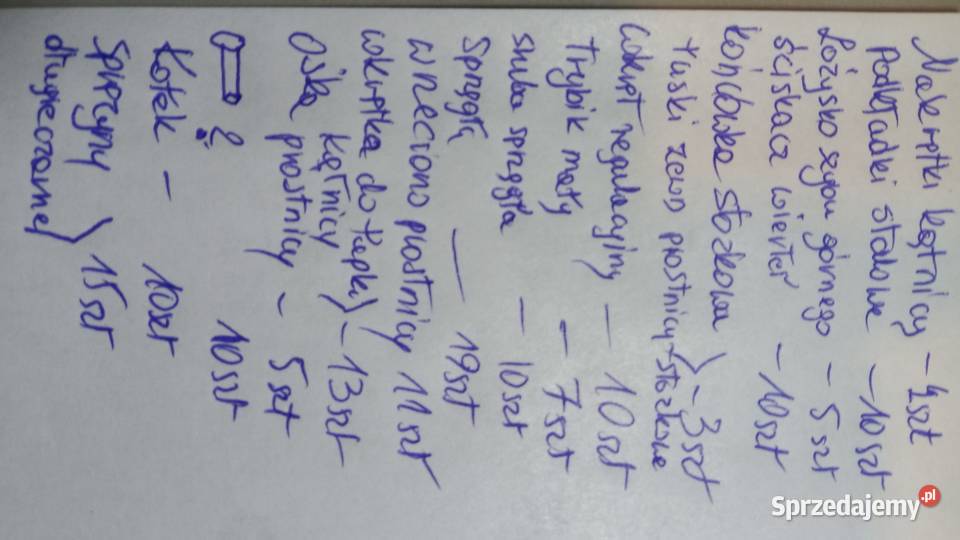 Nakrętki kątnicy - 4szt
Podkładki stalowe - 10szt
Łożysko szybu górnego - 5szt
Ściskacz wierteł - 10szt
końcówka stożkowa
tuski prostnicy - stożkowe } - 3szt
Wkręt regulacyjny - 10szt
Trybik mały - 7szt
śruba sprzęgła - 10szt
Sprzęgła - 19szt
wrzeciono prostnicy 11szt
wkrętka do łapki
kątnicy } - 13szt
Ośka prostnicy - 5szt
? 10szt
Kołek - 10szt
Sprężyny
długie czarne } 15szt
Sprzedajemy.pl